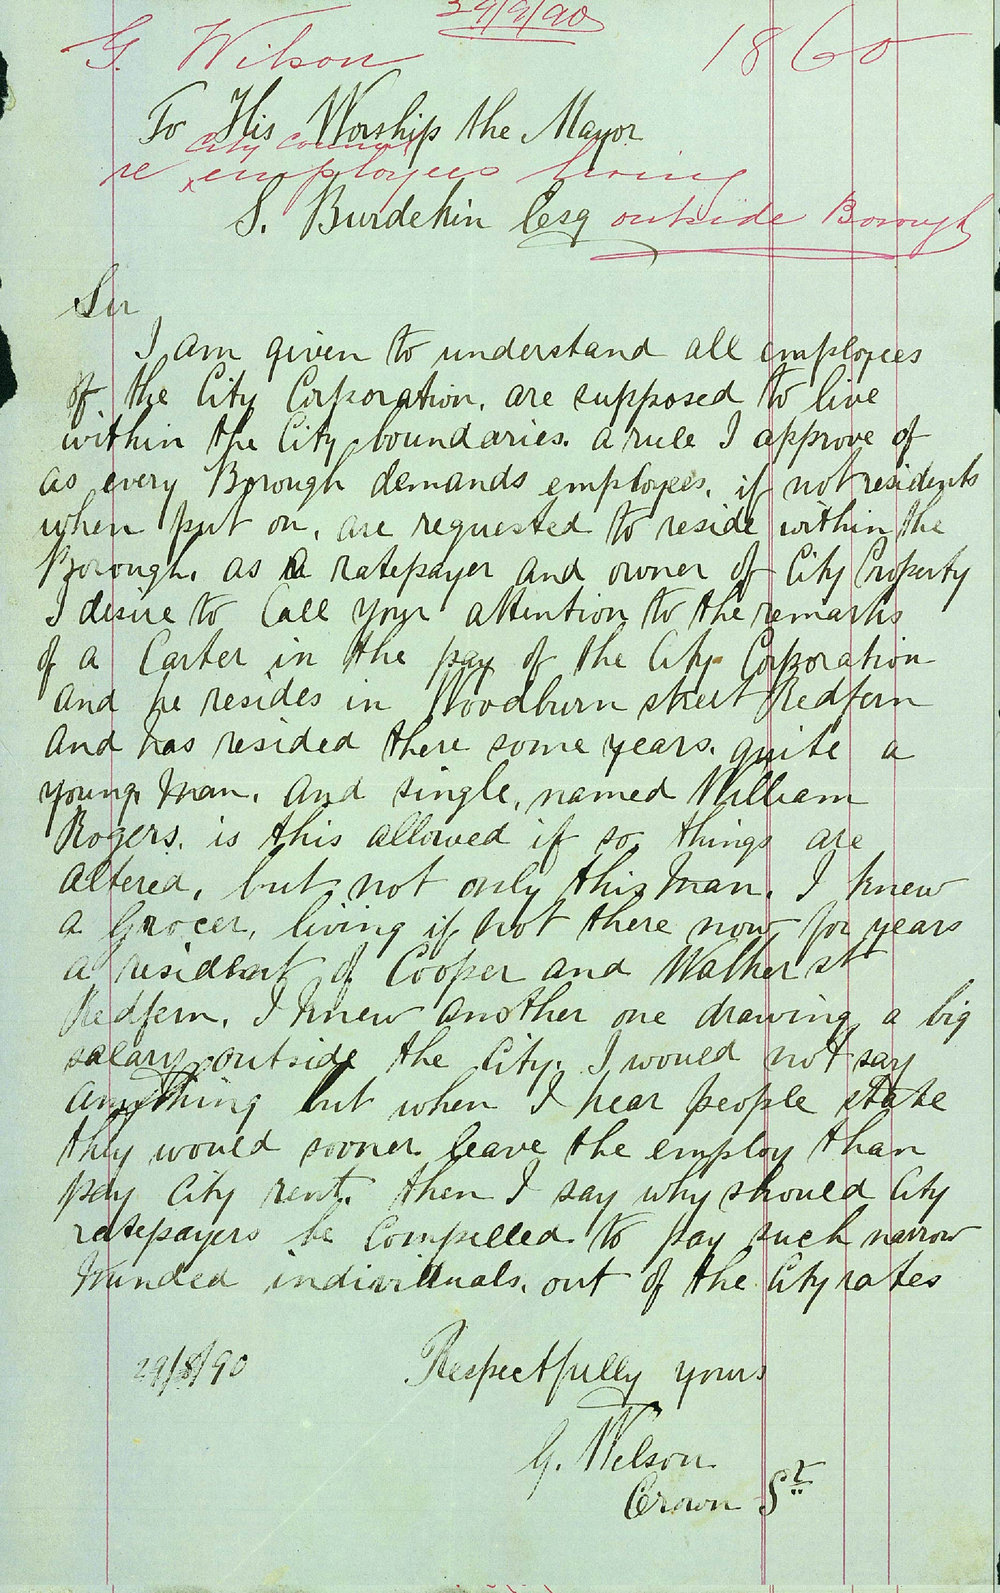 29/9/90
G. Wilson 1860
To His Worship the Mayor
City Council
re ^ employees living
S. Burdekin Esq outside Borough
Sir
I am given to understand all employees
of the City Corporation. are supposed to live
within the City boundaries. a rule I approve of
as every Borough demands employees. if not residents
when put on. are requested to reside within the
Borough. as a ratepayer and owner of City Property
I desire to Call your attention to the remarks
of a Carter in the pay of the City Corporation
and he resides in Woodburn street Redfern
and has resided there some years. quite a
young man. and single, named William
Rogers. is this allowed if so things are
altered, but not only this man. I knew
a Grocer, living if not there now for years
a resident of Cooper and Walker st
Redfern. I knew another one drawing a big
salary outside the City. I would not say
anything but when I hear people state
they would sooner leave the employ than
pay City rent. then I say why should City
ratepayers be Compelled to pay such narrow
minded individuals. out of the City rates
29/8/90 Respectfully yours
G. Wilson
Crown St